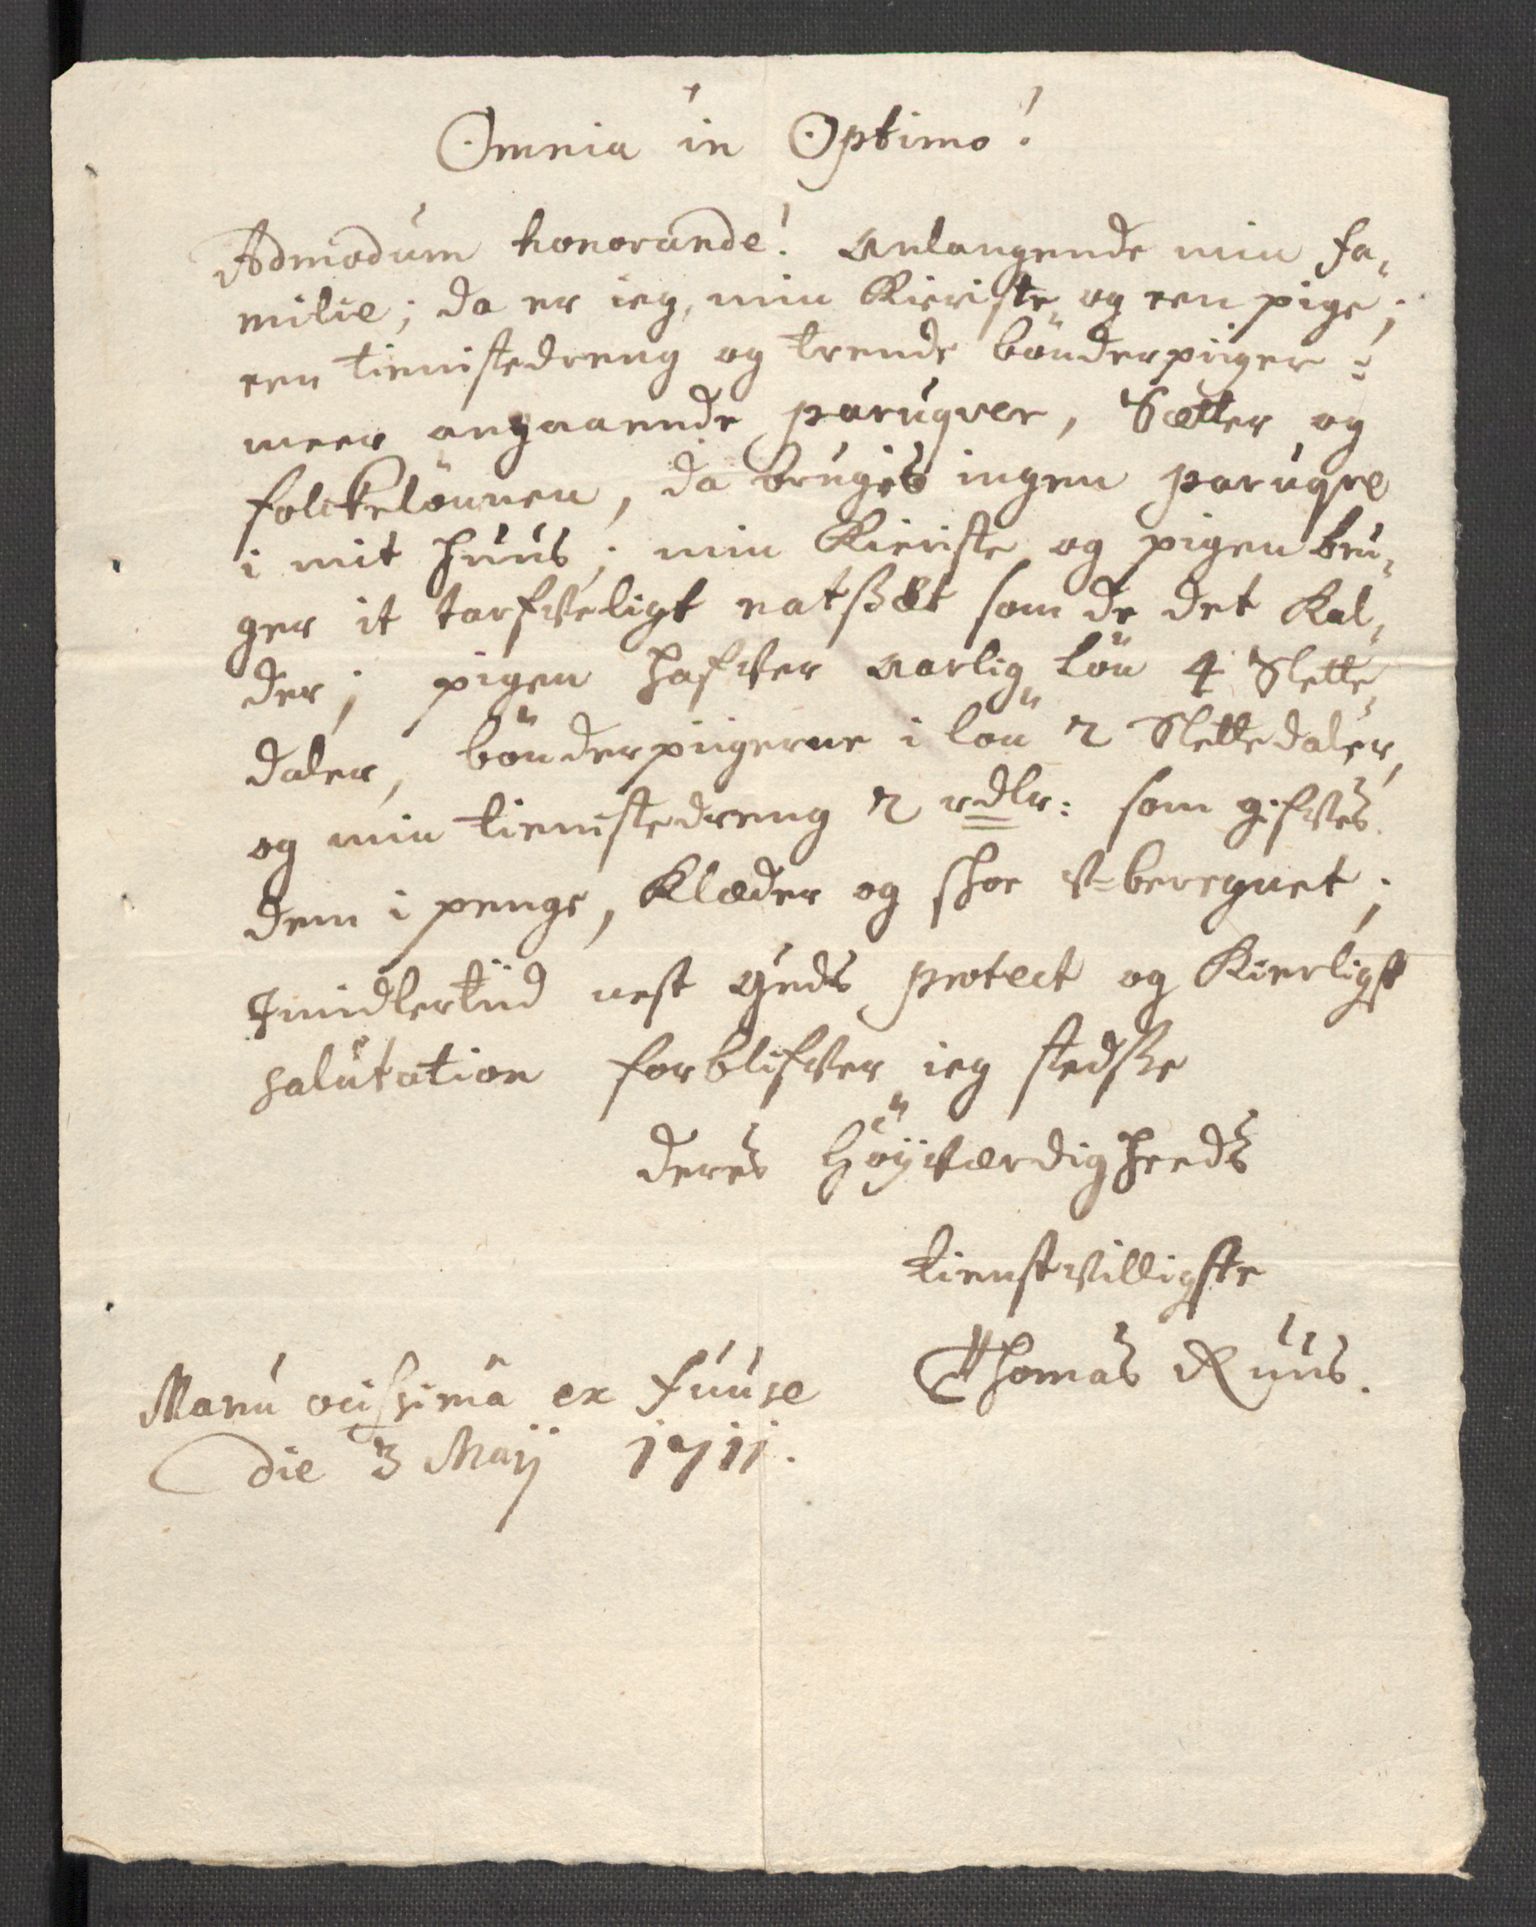 Omnia in Optimo!
Admodum honorande! Anlangende min fa,
milie; da er ieg, min Kieriste og een pige;
een tienistedreng og trende bönderpiiger:
meer angaaende paruqver, Sætter og
folckelönnen, da bruges ingen paruqve
i mit Huus; min Kieriste og pigen bru,
ger it tarfveligt natsæt som de det Kal,
der; pigen Hafver aarlig Lön 4 Slette,
daler, bönderpiigerne i lön 2 Slettedaler,
og min tienistedreng 2 rdlr: som gifves
dem i penge, Klæder og skoe v-beregnet;
Imidlertiid nest Guds protect og Kierligst
salutation forblifver ieg stedse
deres Höyværdigheeds
tienstvilligste
Thomas Ruus.
Manu ocissima ex Fuuse
die 3 Maij 1711.